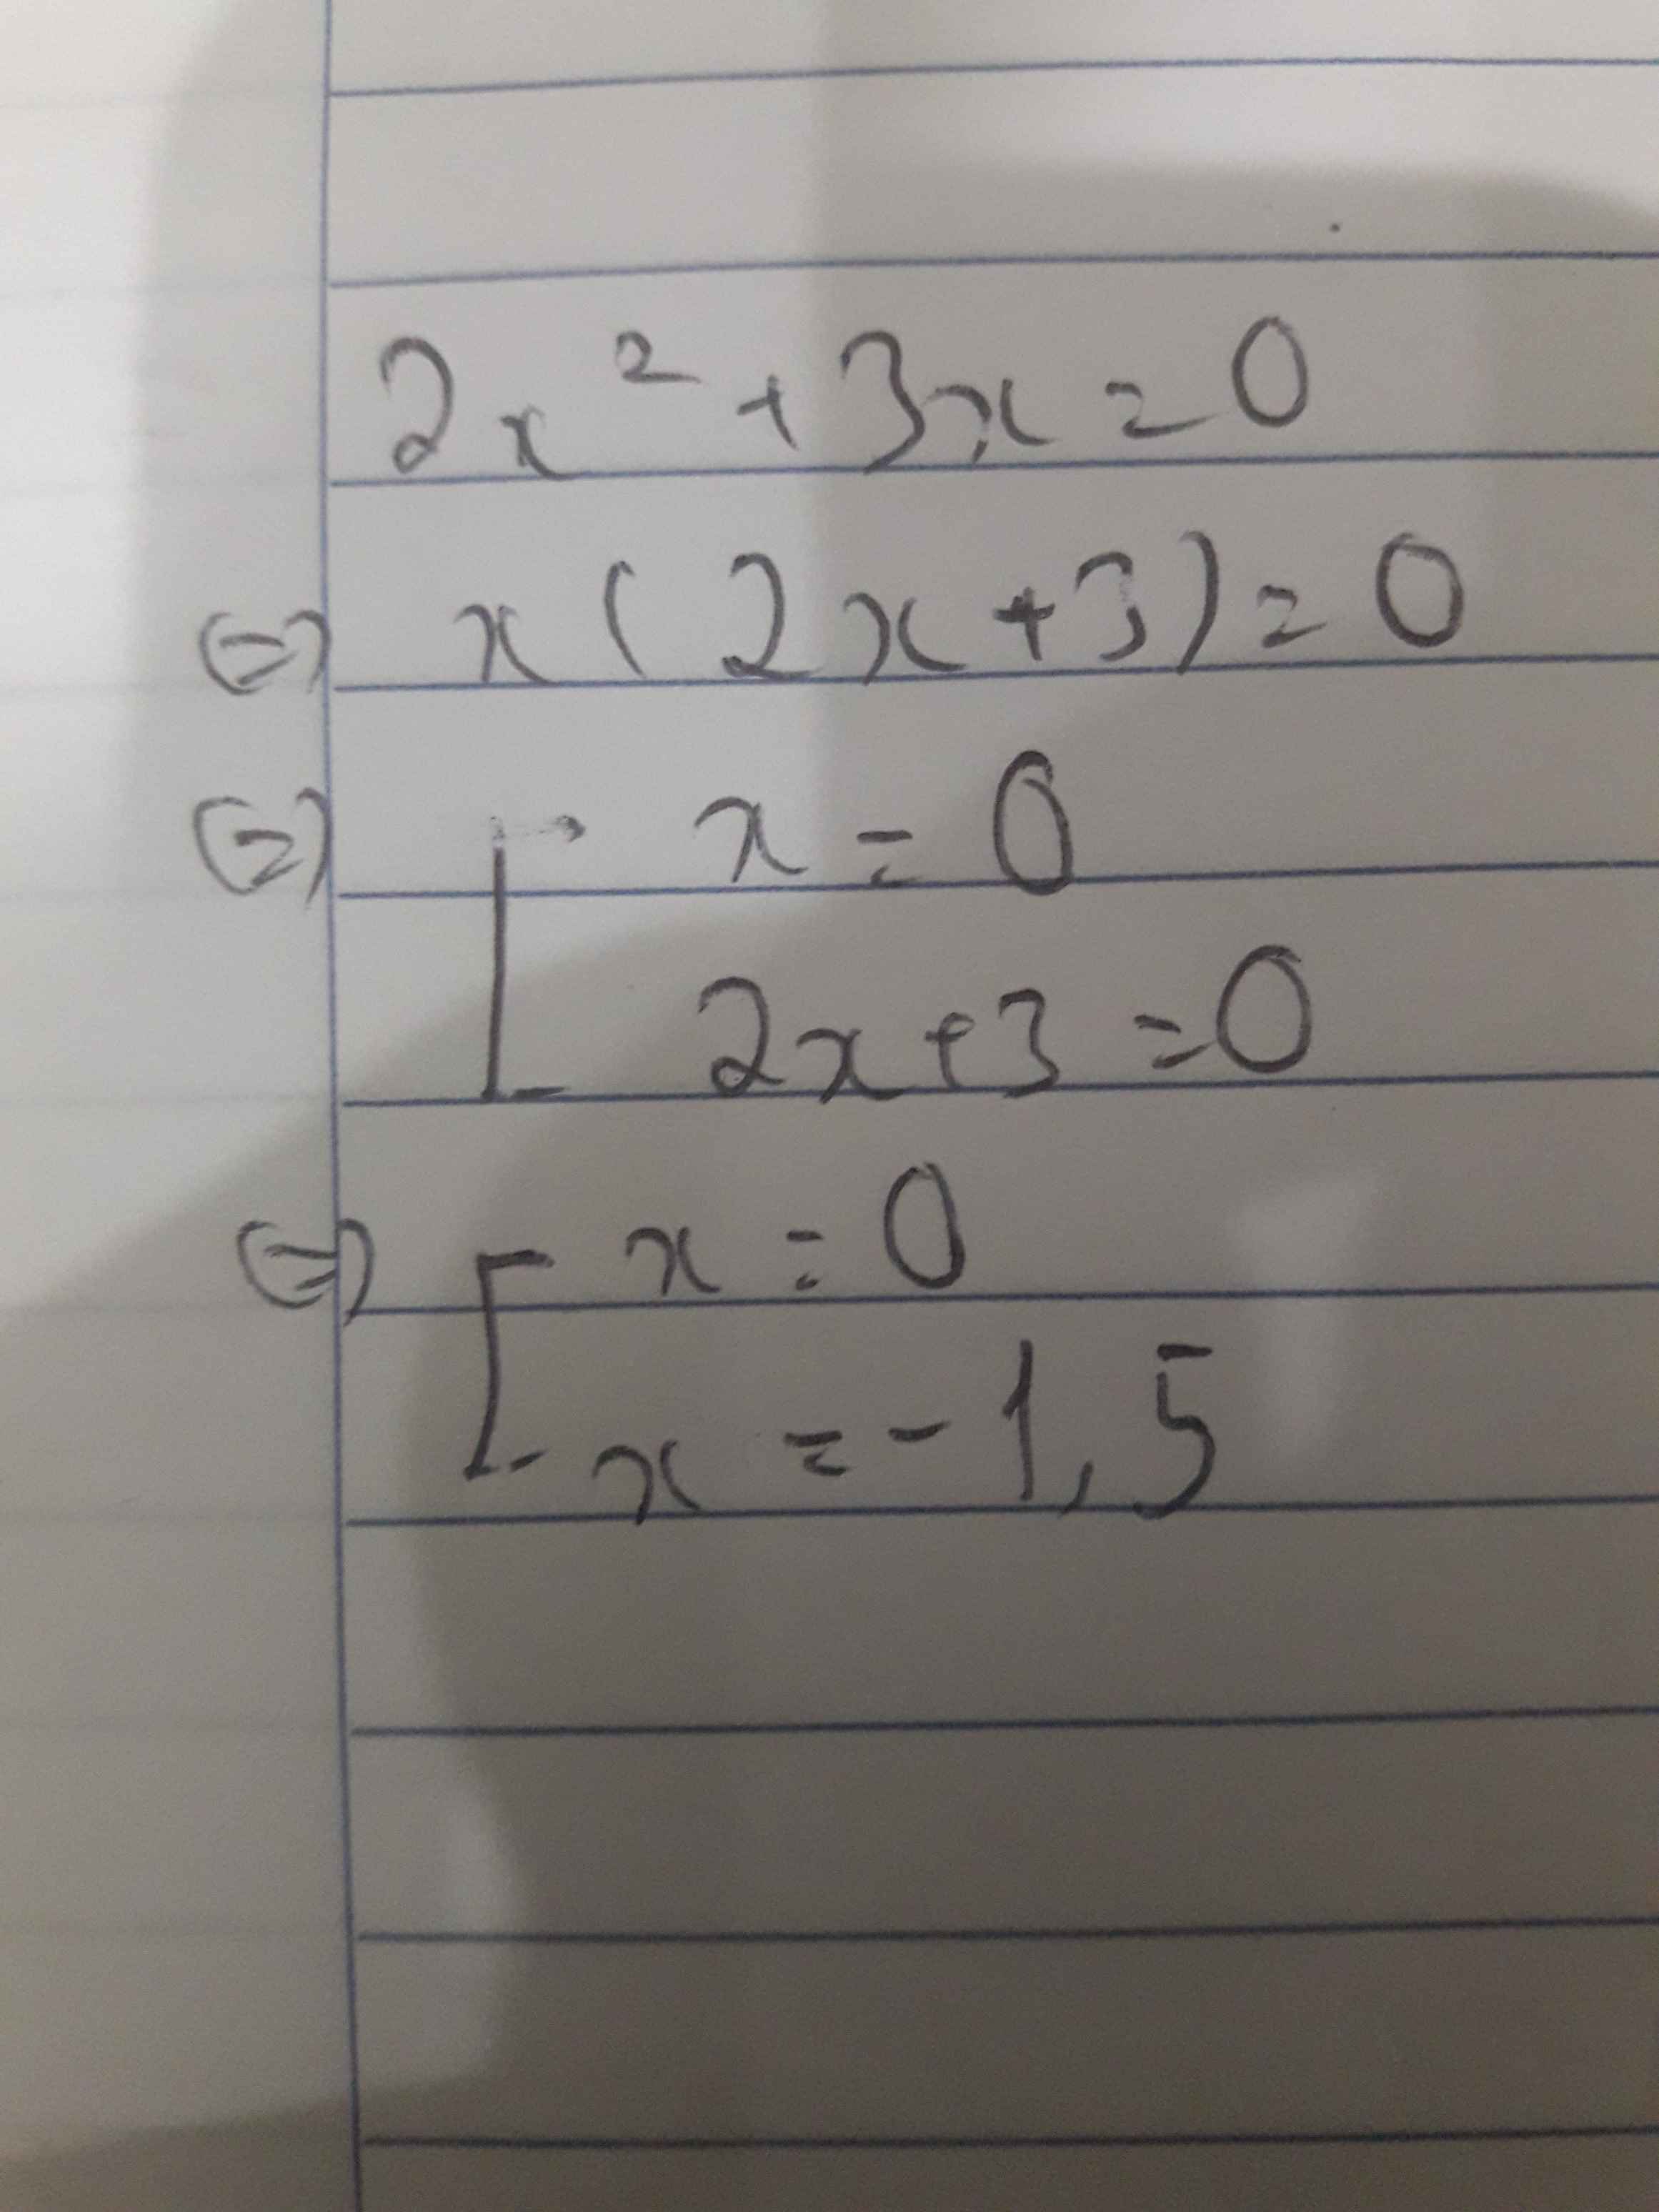 2x² + 3x = 0
⇔ x(2x+3) = 0
⇔ [ x = 0
2x+3 = 0
⇔ [ x = 0
x = -1,5